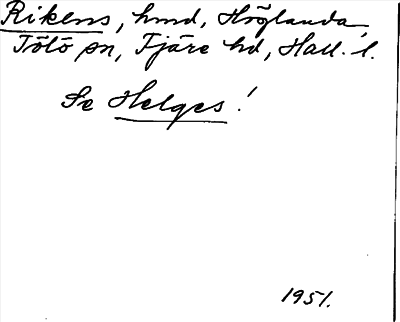 Rikens, hmd, Höglanda,
Tölö sn, Fjäre hd, Hall. l.
Se Helges!
1951.